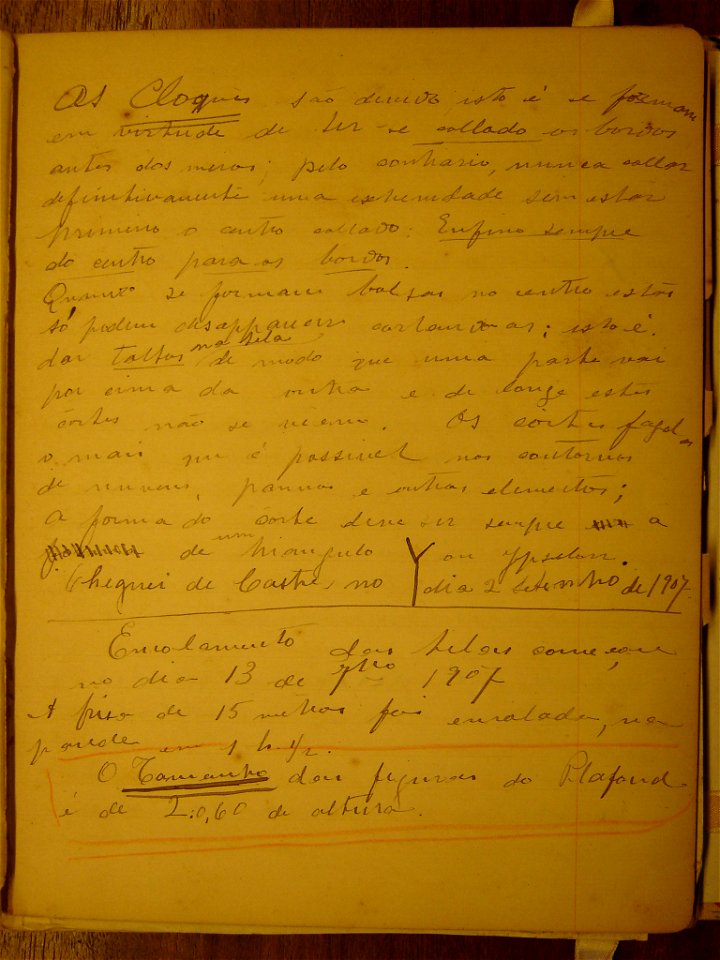 As Cloques são devido isto é se formam
em virtude de ter-se collado os bordos
antes dos meios; pelo contrario, nunca collar
definitivamente uma extremidade sem estar
primeiro o centro collado. Enfim sempre
do centro para os bordos.
Quando se formam bolsas no centro estas
só podem desapparecer cortando as; isto é.
dar talhos na tela de modo que uma parte vai
por cima da outra e de longe estes
córtes não se vêem. Os córtes fazel os
o mais que é possivel nos contornos
de nuvens, pannos e outros elementos;
a forma do córte deve ser sempre a
de um triangulo Y ou Ypsilon.
Cheguei de Castres no dia 2 Setembro de 1907.
Enrolamento das telas começou
no dia 13 de 7bro 1907
A friso de 15 metros foi enrolada, na
parede em 1 h 1/2.
O Tamanho das figuras do Plafond
é de 2:0,60 de altura.